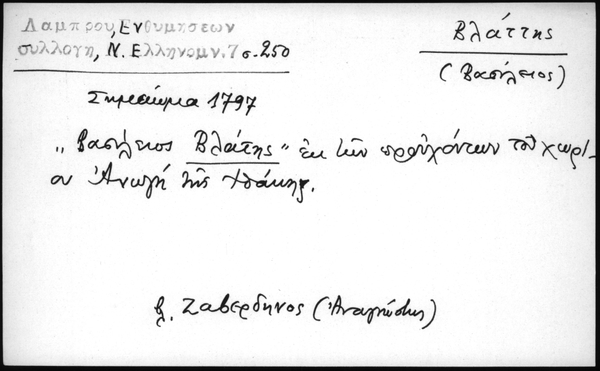 Λαμπρου, Ενθυμησεων
συλλογη, Ν. Ελληνομν. 7 σ. 250
Βλάττης
(Βασίλειος)
Σημείωμα 1797
"Βασίλειος Βλάτης" ἐκ τῶν προὐχόντων τοῦ χωρί-
ου Ἀνωγή τῆς Ἰθάκης.
βλ. Ζαβερδηνος (Ἀναγνώστης)